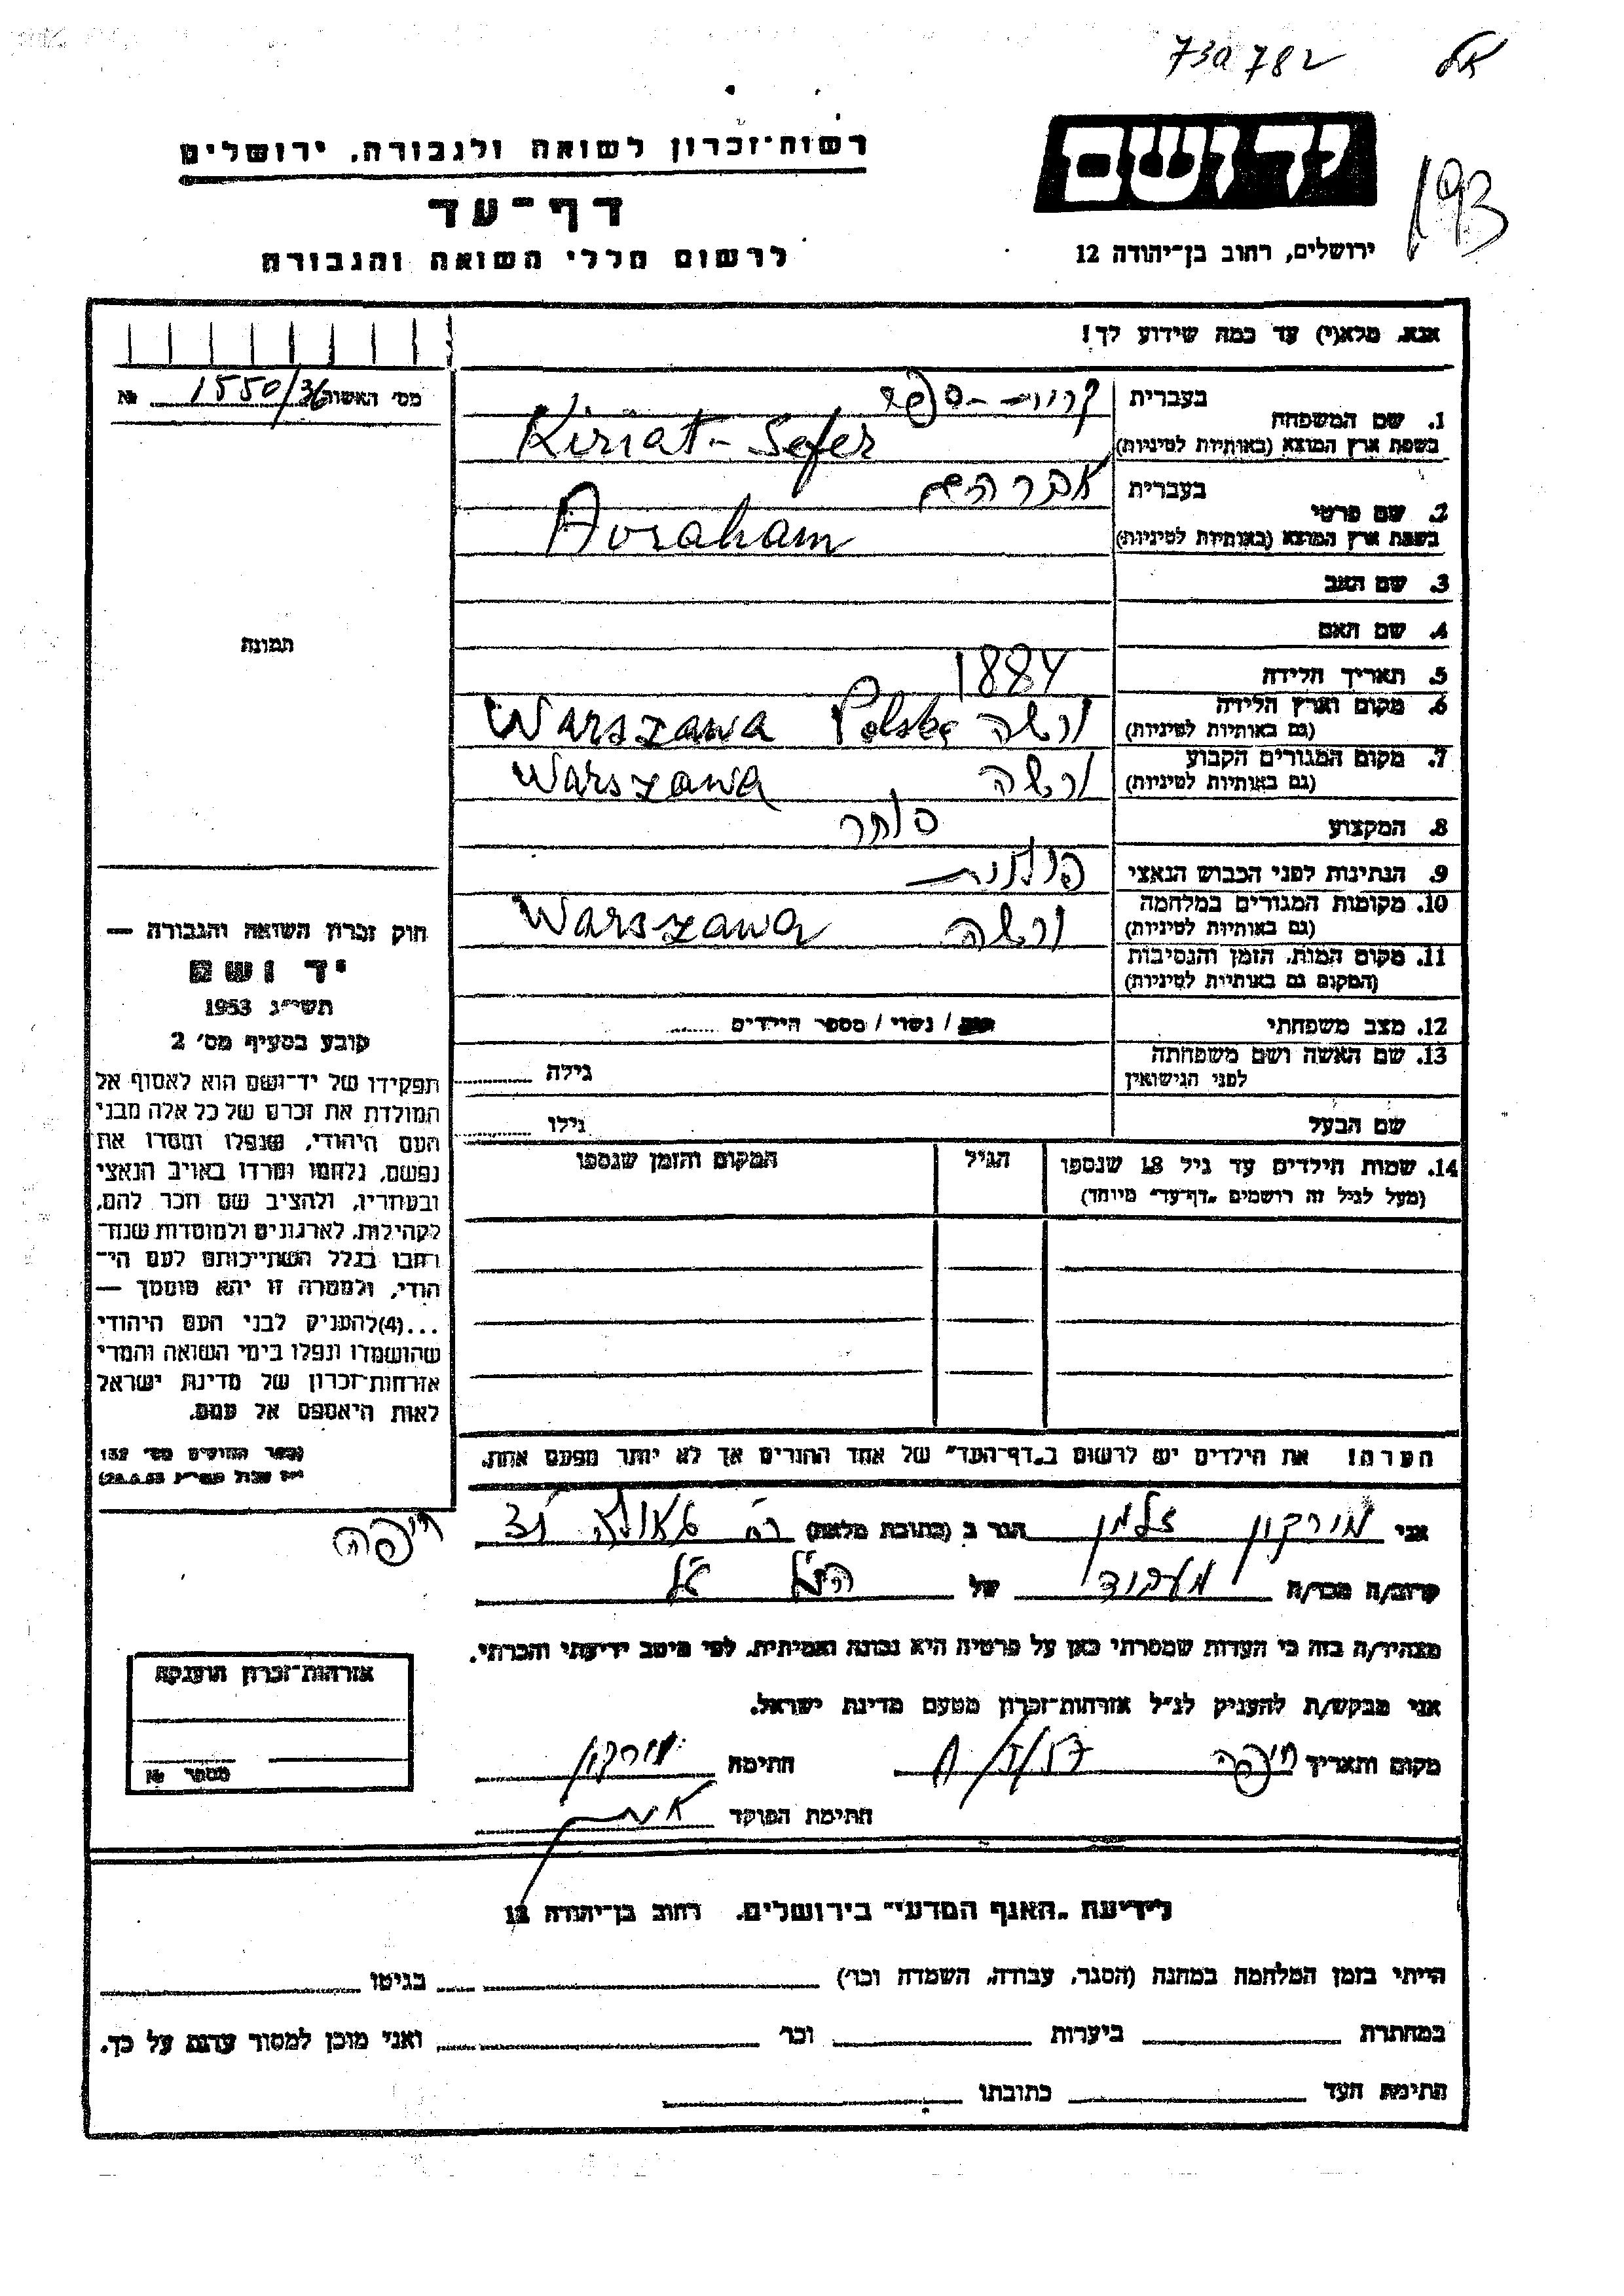 730782
193
יד ושם
ירושלים, רחוב בן־יהודה 12
רשות־זכרון לשואה ולגבורה, ירושלים
דף־עד
לרשום חללי השואה והגבורה
אנא, מלא(י) עד כמה שידוע לך!
מס׳ האשור 1550/36 №
1. שם המשפחה בעברית קרית-ספר
בשפת ארץ המוצא (באותיות לטיניות) Kiriat-Sefer
2. שם פרטי בעברית אברהם
בשפת ארץ המוצא (באותיות לטיניות) Avraham
3. שם האב
4. שם האם
5. תאריך הלידה 1884
6. מקום וארץ הלידה (גם באותיות לטיניות) ורשה Warszawa Polska
7. מקום המגורים הקבוע (גם באותיות לטיניות) ורשה Warszawa
8. המקצוע סוחר
9. הנתינות לפני הכבוש הנאצי פולנית
10. מקומות המגורים במלחמה (גם באותיות לטיניות) ורשה Warszawa
11. מקום המות, הזמן והנסיבות
(המקום גם באותיות לטיניות)
12. מצב משפחתי / נשוי / מספר הילדים
13. שם האשה ושם משפחתה לפני הנישואין גילה
שם הבעל גילו
14. שמות הילדים עד גיל 18 שנספו הגיל המקום והזמן שנספו
(מעל לגיל זה רושמים „דף־עד״ מיוחד)
תמונה
חוק זכרון השואה והגבורה —
יד ושם
תשי״ג 1953
קובע בסעיף מס׳ 2
תפקידו של יד־ושם הוא לאסוף אל
המולדת את זכרם של כל אלה מבני
העם היהודי, שנפלו ומסרו את
נפשם, נלחמו ומרדו באויב הנאצי
ובעוזריו, ולהציב שם וזכר להם,
לקהילות, לארגונים ולמוסדות שנח־
רבו בגלל השתייכותם לעם הי־
הודי, ולמטרה זו יהא מוסמך —
...(4)להעניק לבני העם היהודי
שהושמדו ונפלו בימי השואה והמרי
אזרחות־זכרון של מדינת ישראל
לאות היאספם אל עמם.
(ספר החוקים מס׳ 132
הערה! את הילדים יש לרשום ב„דף־העד״ של אחד ההורים אך לא יותר מפעם אחת.
אני מורקון זלמן הגר ב (כתובת מלאה) רח׳ גאולה
חיפה
קרוב/ה מכר/ה של
מצהיר/ה בזה כי העדות שמסרתי כאן על פרטיה היא נכונה ואמיתית, לפי מיטב ידיעתי והכרתי.
אני מבקש/ת להעניק לנ״ל אזרחות־זכרון מטעם מדינת ישראל.
מקום ותאריך חיפה חתימה מורקון
חתימת הפוקד
אזרחות־זכרון הוענקה
מספר №
לידיעת „האגף המדעי״ בירושלים, רחוב בן־יהודה 12
הייתי בזמן המלחמה במחנה (הסגר, עבודה, השמדה וכו׳) בגיטו
במחתרת ביערות וכו׳ ואני מוכן למסור עדות על כך.
חתימת העד כתובתו